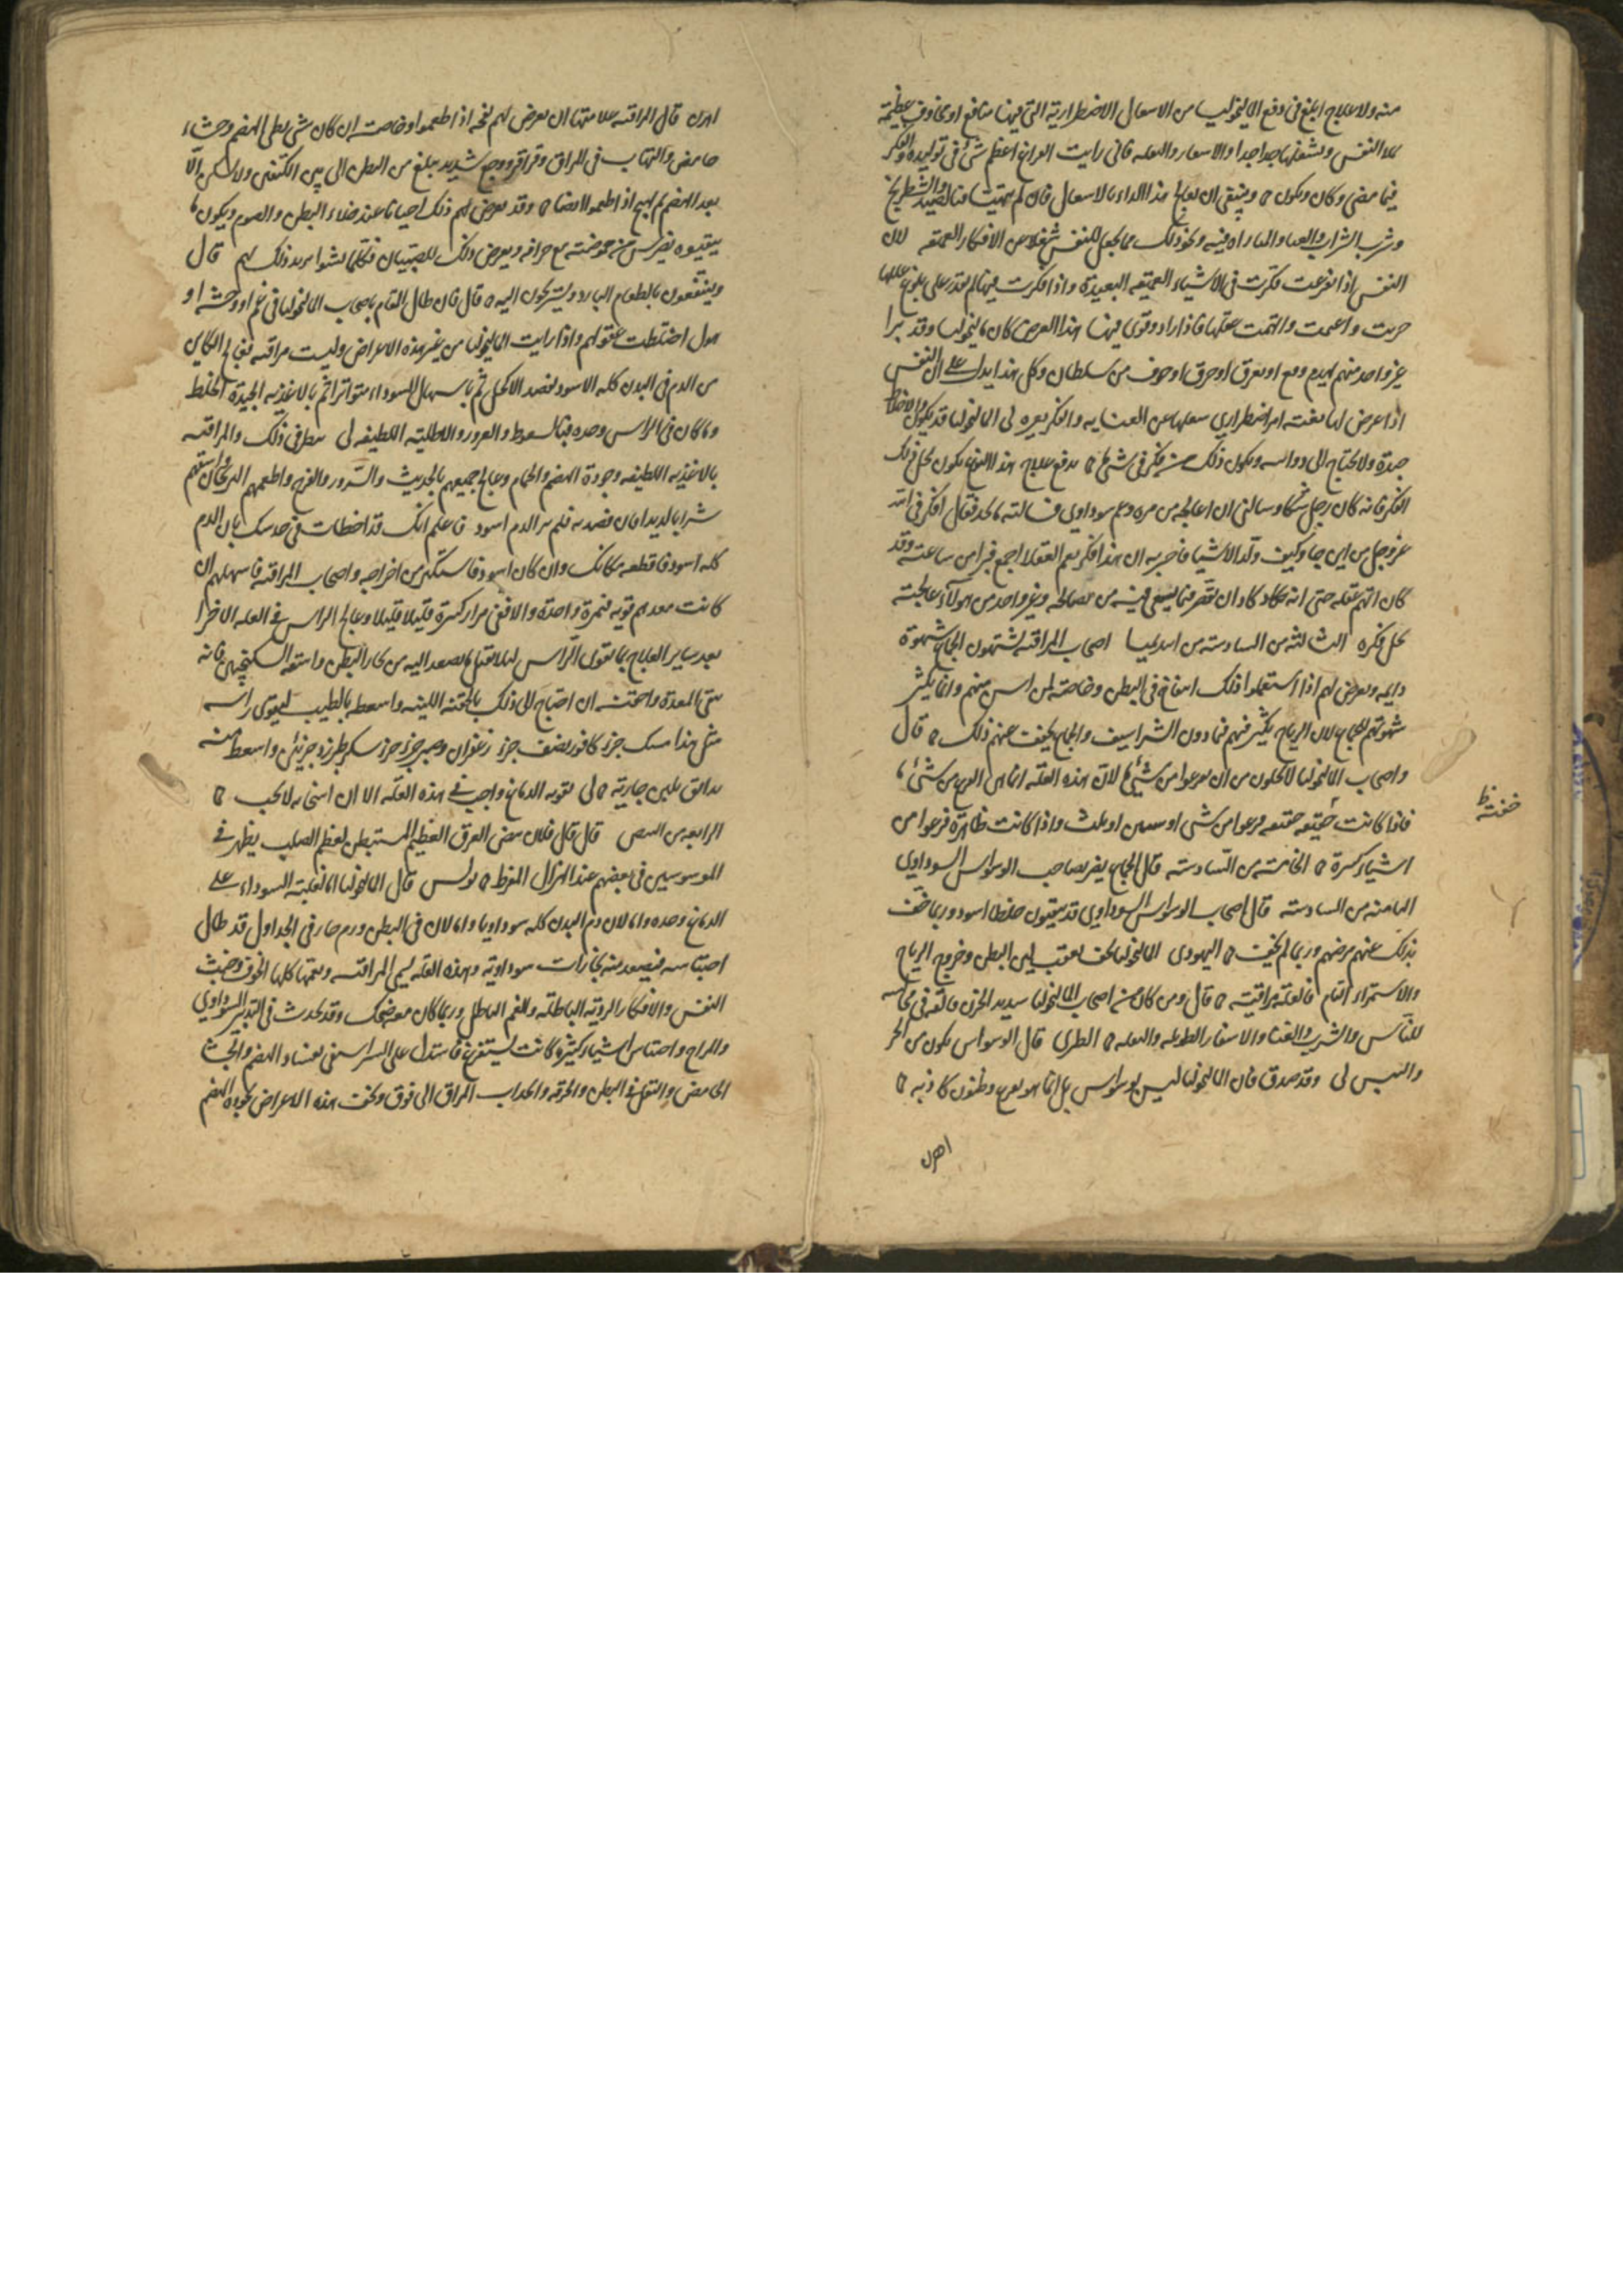 منه ولا علاج ابلغ في دفع المالنخوليا من الاشغال الاضطرارية التي فيها منافع او مخاوف عظيمة
النفس ويشغلها جدا جدا والاسفار والنقله فاني رايت الفراغ اعظم شي في توليده والفكر
فيما مضى وكان ويكون ه وينبغي ان يعالج هذا الداء بالاشغال فان لم يتهيا فبالصيد والشطرنج
وشرب الشراب والغنا والمباراه فيه ونحو ذلك مما يجعل للنفس شغلا عن الافكار العميقه لان
النفس اذا تفرغت فكرت في الاشياء العميقه البعيدة واذا فكرت فيها لم تقدر على بلوغ عللها
حزنت واغتمت واتهمت عقلها فاذا زاد وقوي فيها هذا العرض كان مالنخوليا وقد برا
غير واحد منهم بهدم وقع او بغرق او حرق او خوف من سلطان وكل هذا يدل على ان النفس
اذا عرض لها بغته امر اضطراري شغلها عن العناية والفكر بغيره لي المالنخوليا قد يكون والاخلاط
جيدة ولا يحتاج الى دواء ويكون ذلك من فكر في شي ما ه يدفع علاج هذا النوع يكون بحل ذلك
الفكر فانه كان رجل شكا وسالني ان اعالجه من مره وغم سوداوي فسالته ما تجد فقال افكر في الله
عز وجل من اين جا وكيف ولد الاشياء فاخبرته ان هذا فكر يعم العقلا اجمع فبرا من ساعته وقد
كان اتهم عقله حتى انه كاد ان يقصر فيما يسعى فيه من مصالحه وغير واحد من هولاء عالجته
بحل فكره الثالثه من السادسه من ابيذيميا اصحاب المراقيه يشتهون الجماع شهوة
دايمه ويعرض لهم اذا استعملوا ذلك انتفاخ في البطن وخاصة لمن اسن منهم وانما يكثر
شهوتهم للجماع لان الرياح يكثر فيهم فيما دون الشراسيف والجماع يخفف عنهم ذلك ه قال
واصحاب المالنخوليا لا يخلون من ان يفزعوا من شي ما لان هذه العلة انما هي الفزع من شي ما
فاذا كانت خفيفه فزعوا من شي او شيين او ثلث واذا كانت ظاهرة فزعوا من
خفته ظ
اشياء كثيرة ه الخامسة من السادسه قال الجماع يضر بصاحب الوسواس السوداوي
الثامنه من السادسه قال اصحاب الوسواس السوداوي قد يتقيون خلطا اسود وربما خف
بذلك عنهم مرضهم وربما لم يخف ه اليهودي المالنخوليا يخف بعقب لين البطن وخروج الرياح
والاستمراء التام فالعله مراقية ه قال ومن كان من اصحاب المالنخوليا شديد الحزن فالقه في مجالسه
للناس والشرب والغنا والاسفار الطويله والنقله ه الطبري قال الوسواس يكون من الحر
واليبس لي وقد صدق فان المالنخوليا ليس بوسواس بل انما هو فزع وظنون كاذبه ه
اهرن
اهرن قال المراقيه علامتها ان يعرض لهم نفخه اذا طعموا وخاصت ان كان شي بطي الهضم وجشاء
حامض والتهاب في المراق وقراقر ووجع شديد يبلغ من البطن الى بين الكتفين ولا يسكن الا
بعد الهضم ثم يهيج اذا طعموا ايضا ه وقد يعرض لهم ذلك احيانا عند خلاء البطن والصوم ويكون ما
يتقيوه يضرس من حموضته مع حرافه ويعرض ذلك للصبيان فكلما شبوا يزيد ذلك بهم قال
وينتفعون بالطعام البارد ويستريحون اليه ه قال فان طال السقام باصحاب المالنخوليا في غم او وحشه او
هول اختلطت عقولهم واذا رايت المالنخوليا من غير هذه الاعراض وليست مراقيه فعالج الكاين
من الدم في البدن كله الاسود بفصد الاكحل ثم باسهال السوداء متواترا ثم بالاغذيه الجيدة الخلط
وما كان في الراس وحده فبالسعوط والغرور والاطلية اللطيفه لي ينظر في ذلك والمراقيه
بالاغذيه اللطيفه وجودة الهضم والحمام وعالج جميعهم بالحديث والسرور والفرح واطعمهم الدراج واسقهم
شرابا لذيذا فان فصدته فلم تر الدم اسود فاعلم انك قد اخطات في حدسك بان الدم
كله اسود فاقطعه مكانك وان كان اسود فاستكثر من اخراجه واصحاب المراقيه فاسهلهم ان
كانت معدهم قويه فبمرة واحدة والا ففي مرار كثيرة قليلا قليلا وعالج الراس في العله الاخرا
بعد ساير العلاج بما يقوي الراس لئلا يقبل ما يصعد اليه من بخار البطن واسقه السكنجبين فانه
ينقي المعدة واحقنه ان احتاج الى ذلك بالحقنه اللينه واسعطه بالطيب ليقوى راسه
مثل هذا مسك جزء كافور نصف جزء زعفران وصبر جزء جزء سكر طبرزد جزئين واسعط منه
بدانق بلبن جارية ه لي تقويه الدماغ واجب في هذه العله الا ان اسخانه لا يجب ه
الرابعه من النبض قال قال فلان نبض العرق العظيم المستبطن لعظم الصلب يظهر في
الموسوسين في بعضهم عند الهزال المفرط ه بولس قال المالنخوليا اما لغلبة السوداء على
الدماغ وحده واما لان دم البدن كله سوداويا واما لان في البطن ورم حار في الجداول قد طال
احتباسه فيصعد منه بخارات سوداوية وهذه العله يسمى المراقيه ويعمها كلها الخوف وخبث
النفس والافكار الردية الباطلة والغم الباطل وربما كان مع ضحك وقد يحدث في التدبير السوداوي
والمزاج واحتباس اشياء كثيرة كانت تستفرغ فاستدل على الشراسيفي بفساد الهضم والجشا
الحامض والثقل في البطن والحرقه وانجذاب المراق الى فوق ويخف هذه الاعراض بجوده الهضم